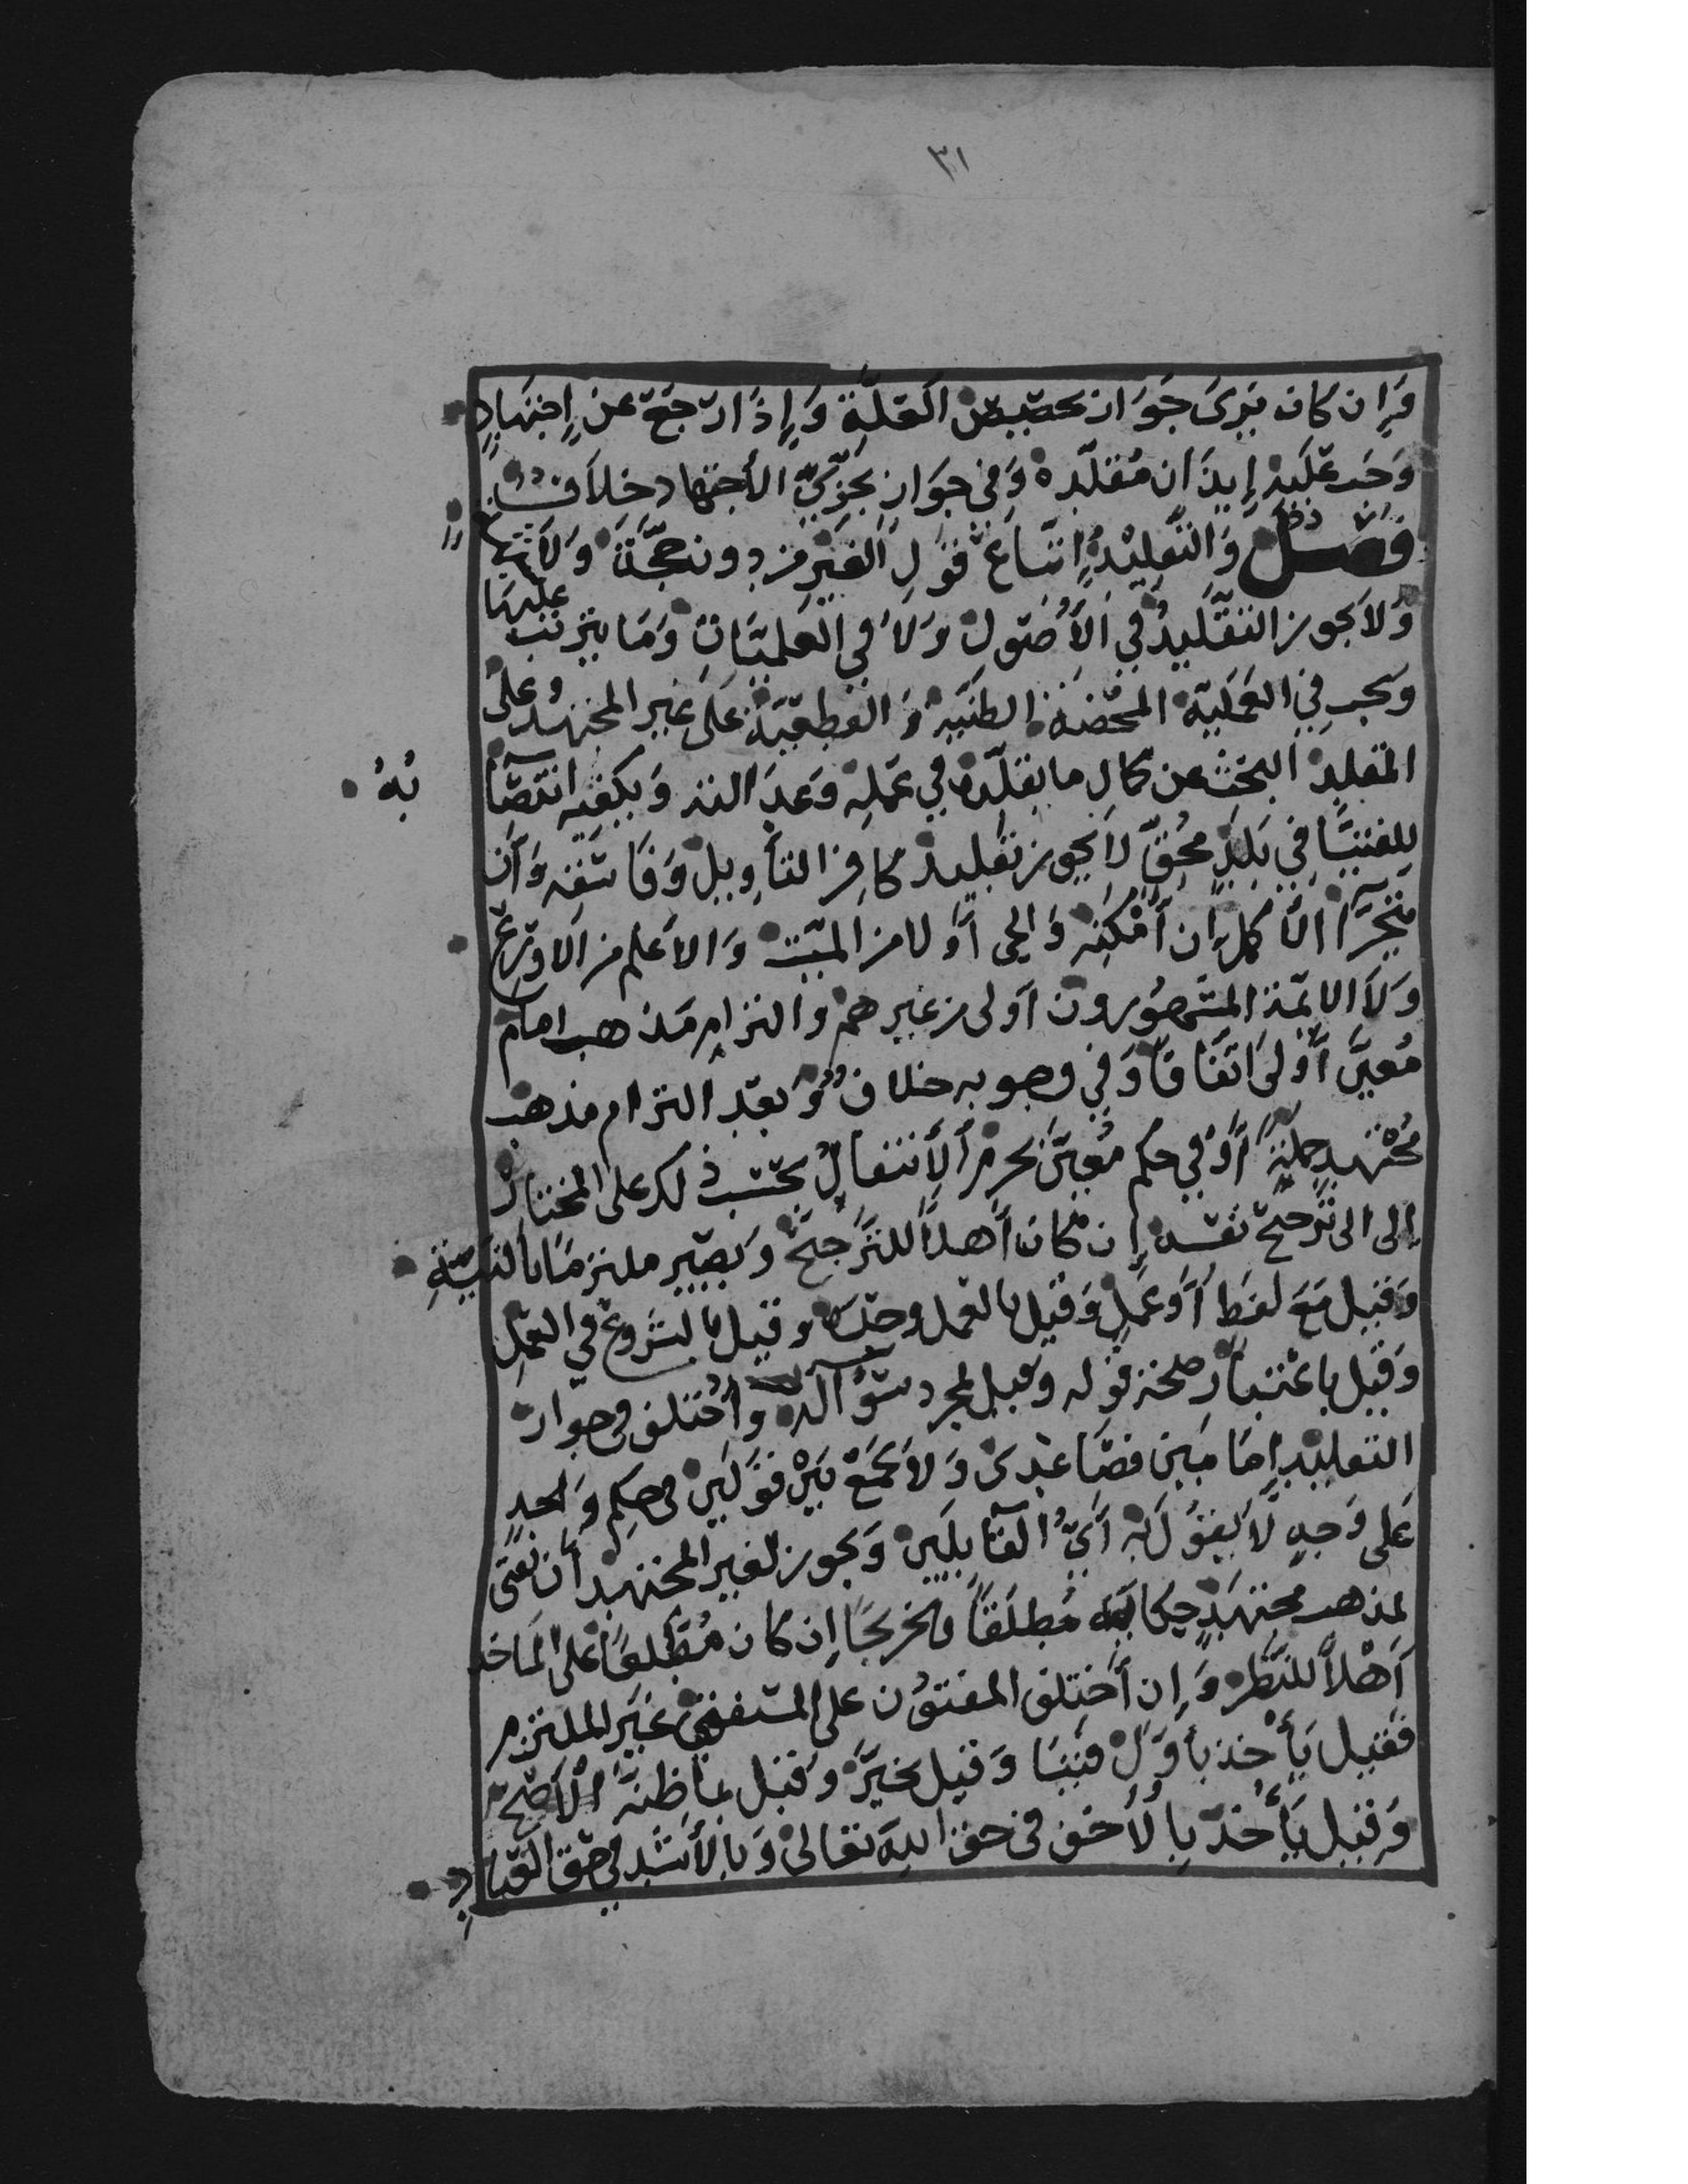 ٣١
وَإِن كَانَ يَرَى جَوَازَ تخصيص العلَّةِ وَإِذَا رجَعَ عن إِجتهَادٍ
وَجَبَ عَليْهِ إِيذَان مُقَلِّدِه وَفي جَوَازِ تجزّيّ الأجتهاد خلاَفٌ
فصل وَالتَّقليْدُ إِتبَاعُ قَوْلِ الغيْرِ من دون حجَّة وَلاَ شبهة
وَلاَ يجوز التقليدُ في الأُصُول وَلاَ في العلميّاتِ وَمَا يترتب عليهَا
ويجب في العَمَليّة المحضة الظنيّه وَالقطعيّة عَلَى غير المجتهد وعلى
المقلد البحث عن كمالِ ما يقلّده في عمله وَعَدَالته وَيكفيه انتصَا
بُهُ
للفتيَا في بَلَدٍ مُحقّ لاَ يجوز تقليد كافر التأويل وَفَاسقه وَأن
يتحرَّا الأكمل إن أمكنه وَالحي أَولا من الميّت وَالأعلم من الاورَع
وَلاَ الائمة المشهورون أَولى من غيرهم والتزام مذهب امام
مُعيَّن أَولى اتفَاقاً وَفي وجوبه خلاف وَبعد التزام مذهب
مُجتهدٍ جملةً أَوْ في حكم مُعيَّن يحرم الأنتقال بحَسَب ذلك على المختار
إلى الى ترجيح نفسه إن كان أَهلاً للترجيح وَيصير ملتزمَا بالنيَّةِ
وَقيل مَعَ لفظ أَوْ عَمَلٍ وَقيل بالعمل وحدَه وقيل بالشروع في العمل
وَقيل باعتقاد صحة قوله وقيل بمجرد سؤاله واختلف في جواز
التقليد إمامَين فصَاعدىً وَلاَ يجمَعْ بَيْن قوْلَين في حكمٍ واحدٍ
عَلى وَجهٍ لاَ يقول به أَيُّ القآيلَين وَيجوز لغير المجتهد أن يفتى
بمذهب مجتهدٍ حكاية مُطلَقاً وتخريجَا إن كان مُطّلعاً على المَاخذ
أَهْلاً للنّظر وَإن أختلف المفتون على المستفتي غيْر الملتزم
فقيل يأخذ بأوَّل فتيَا وَقيل يخيَّر وَقيل بمَا ظنَّه الأصَحّ
وَقيل يَأخذ بالأخف في حق الله تعَالى وَبالأشد في حق العبادِ